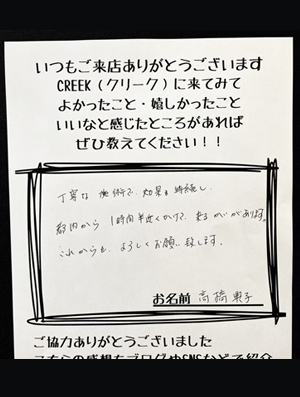 いつもご来店ありがとうございます
CREEK（クリーク）に来てみて
よかったこと・嬉しかったこと
いいなと感じたところがあれば
ぜひ教えてください！！
丁寧な施術で、効果も持続し、
都内から1時間半近くかけて、来るかいがあります。
これからも、よろしくお願い致します。
お名前 高橋 恵子
ご協力ありがとうございました
こちらの感想をブログやSNSなどで紹介